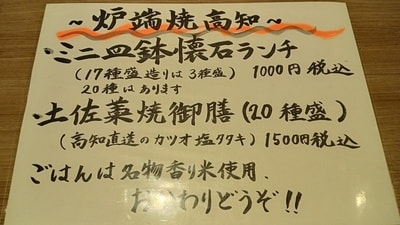 ～炉端焼高知～
・ミニ皿鉢懐石ランチ
(17種盛 造りは3種盛) 1000円税込
20種はあります
・土佐藁焼御膳(20種盛)
(高知直送のカツオ塩タタキ) 1500円税込
ごはんは名物香り米使用、
おかわりどうぞ!!